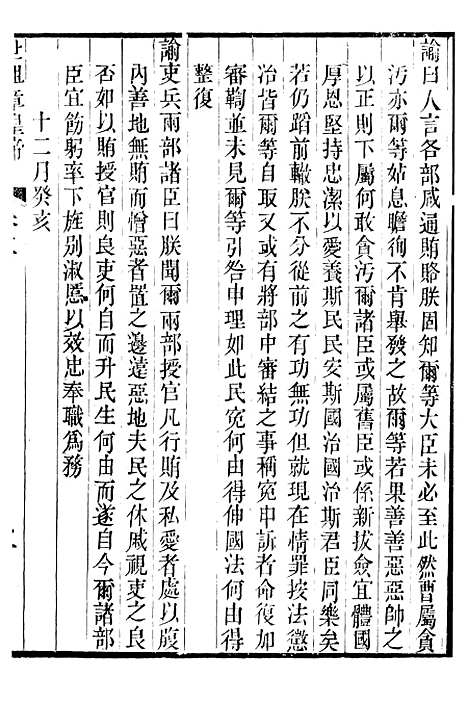 諭曰人言各部咸通賄賂朕固知爾等大臣未必至此然曹屬貪
污亦爾等姑息瞻徇不肯舉發之故爾等若果善善惡惡帥之
以正則下屬何敢貪污爾諸臣或屬舊臣或係新拔僉宜體國
厚恩堅持忠潔以愛養斯民民安斯國治國治斯君臣同樂矣
若仍蹈前轍朕不分從前之有功無功但就現在情罪按法懲
治皆爾等自取又或有將部中審結之事稱冤申訴者命復加
審鞫並未見爾等引咎申理如此民冤何由得伸國法何由得
整復
諭吏兵兩部諸臣曰朕聞爾兩部授官凡行賄及私愛者處以腹
內善地無賄而憎惡者置之邊遠惡地夫民之休戚視吏之良
否如以賄授官則良吏何自而升民生何由而遂自今爾諸部
臣宜飭躬率下旌別淑慝以效忠奉職為務
十二月癸亥
世祖章皇帝